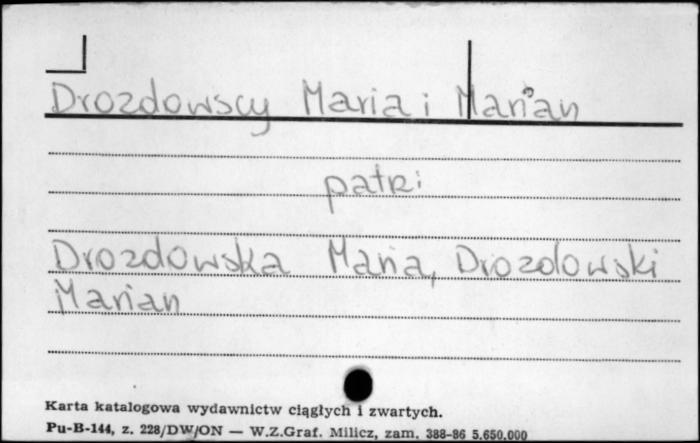 Drozdowscy Maria i Marian
patrz:
Drozdowska Maria, Drozdowski
Marian
Karta katalogowa wydawnictw ciągłych i zwartych.
Pu-B-144, z. 228/DW/ON — W.Z.Graf. Milicz, zam. 388-86 5.650.000